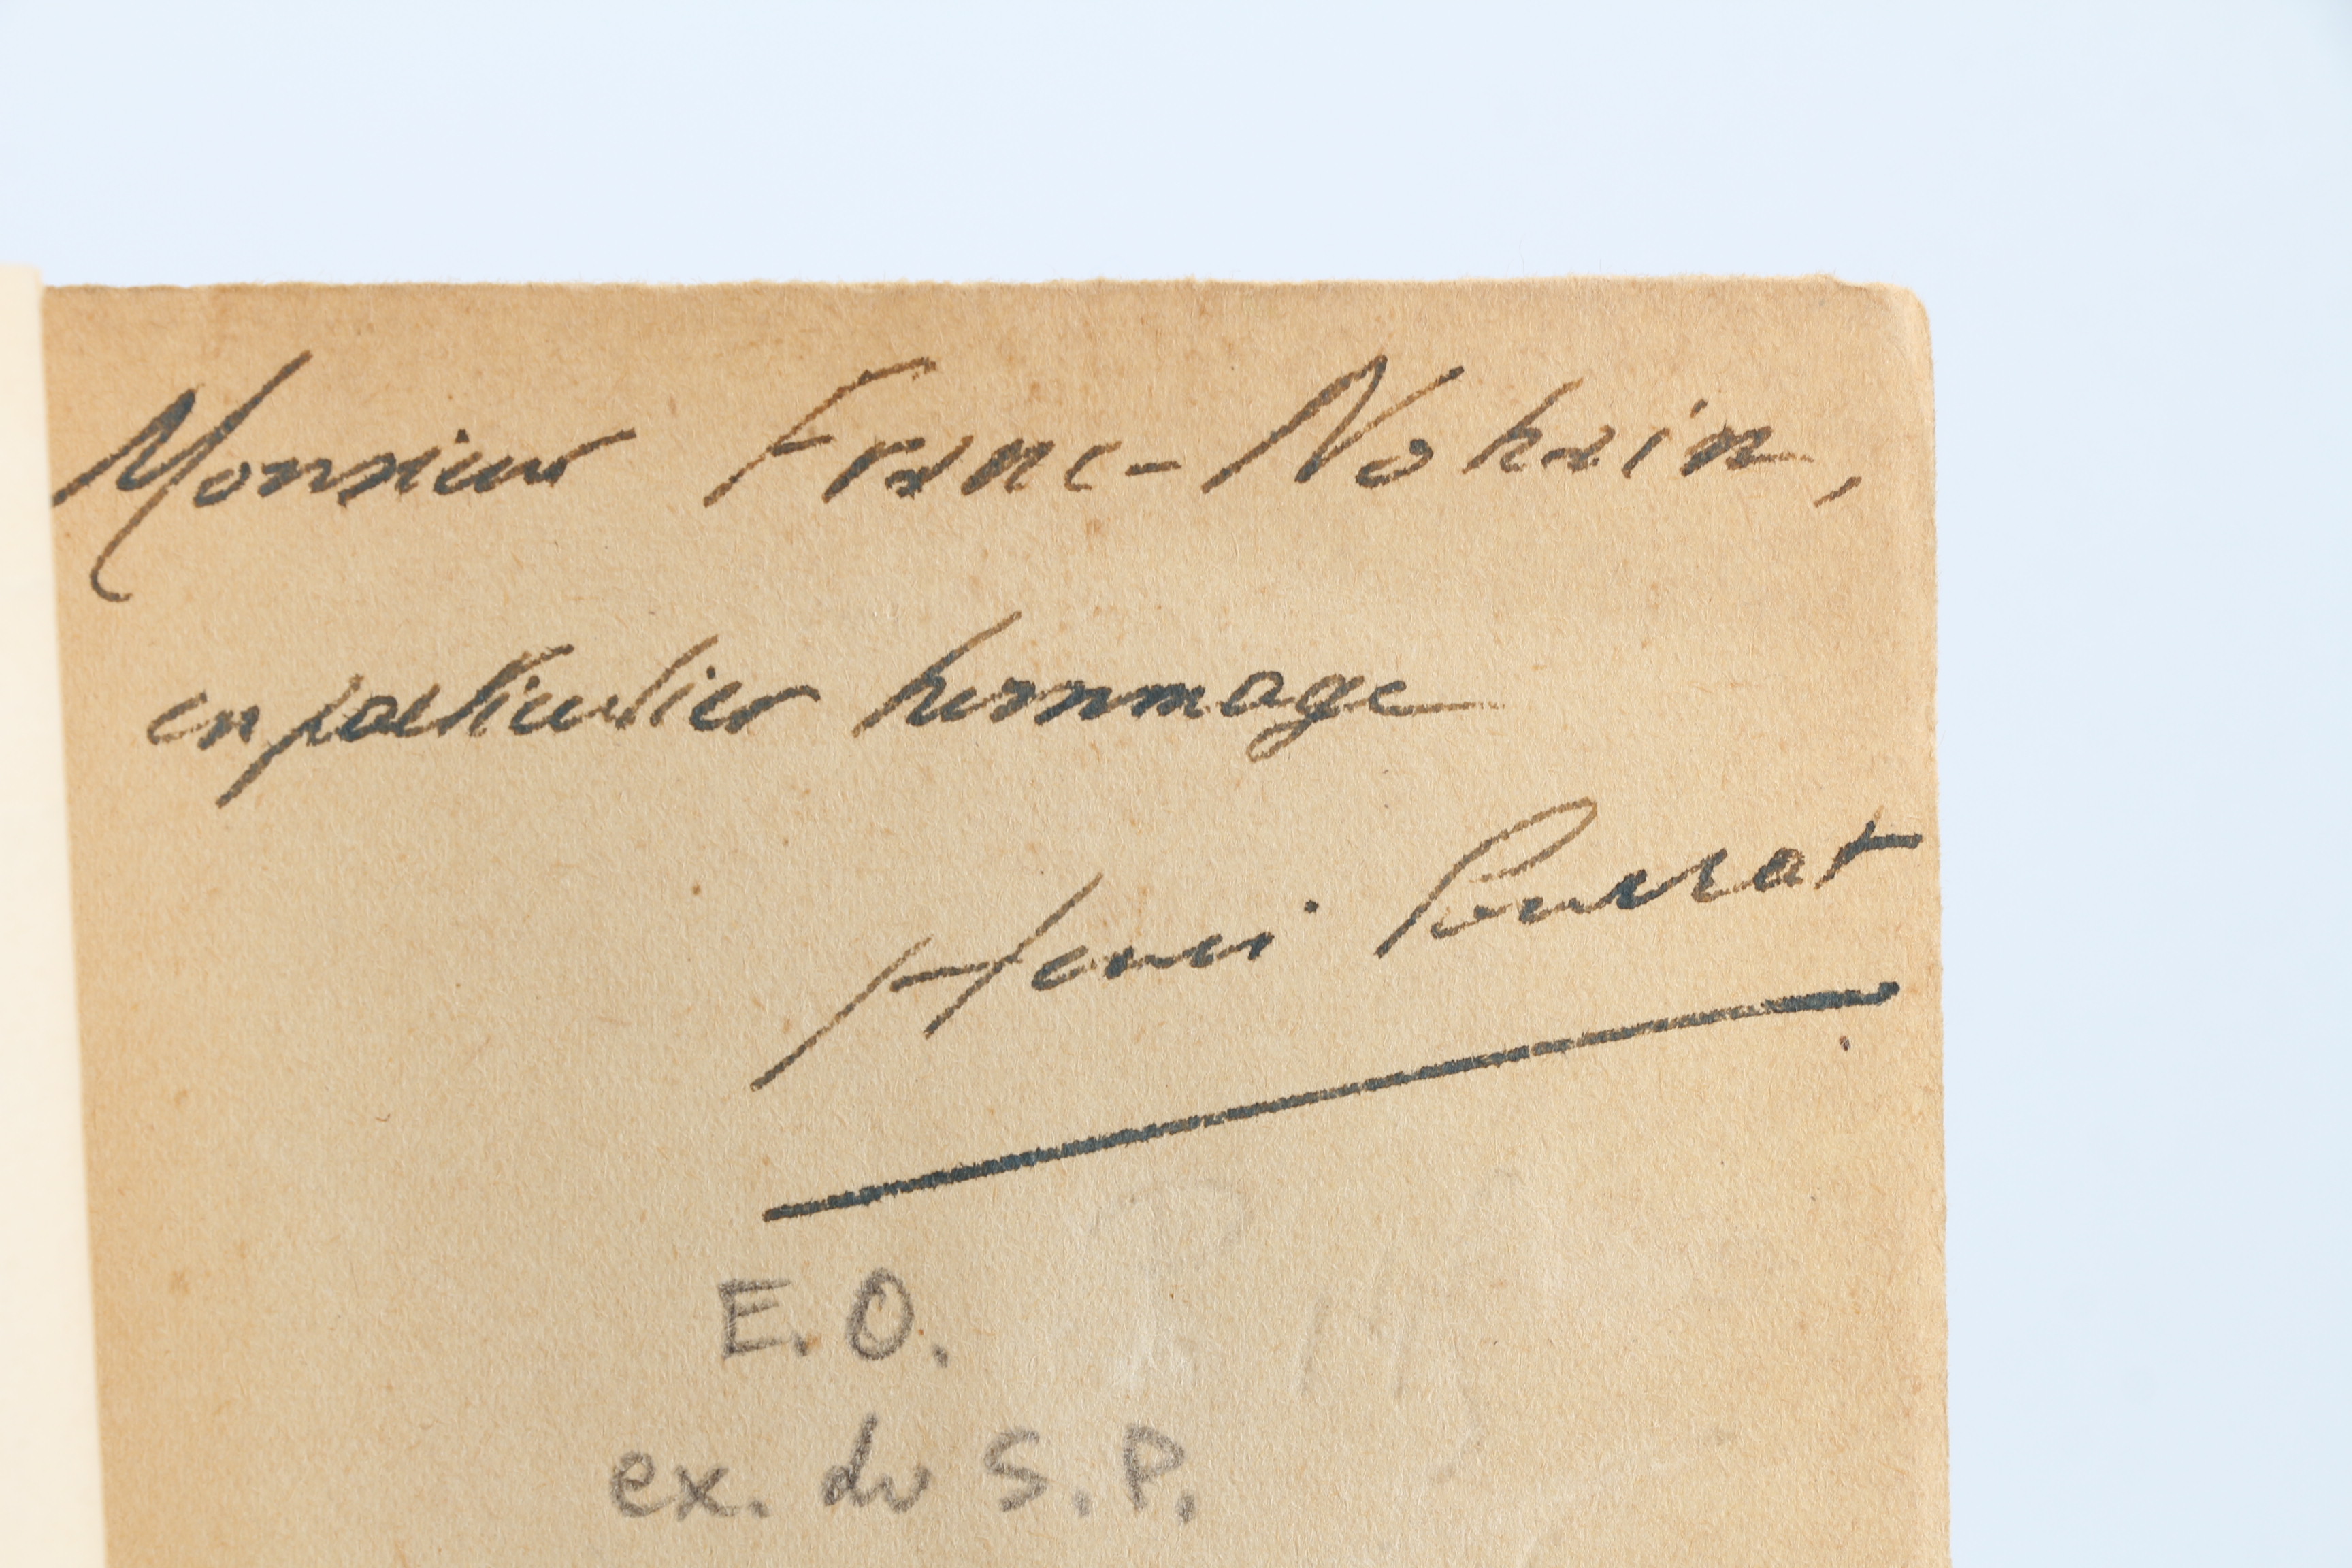 Monsieur Franc-Nohain,
en particulier hommage
Henri Pourrat
E.O.
ex. du S.P.